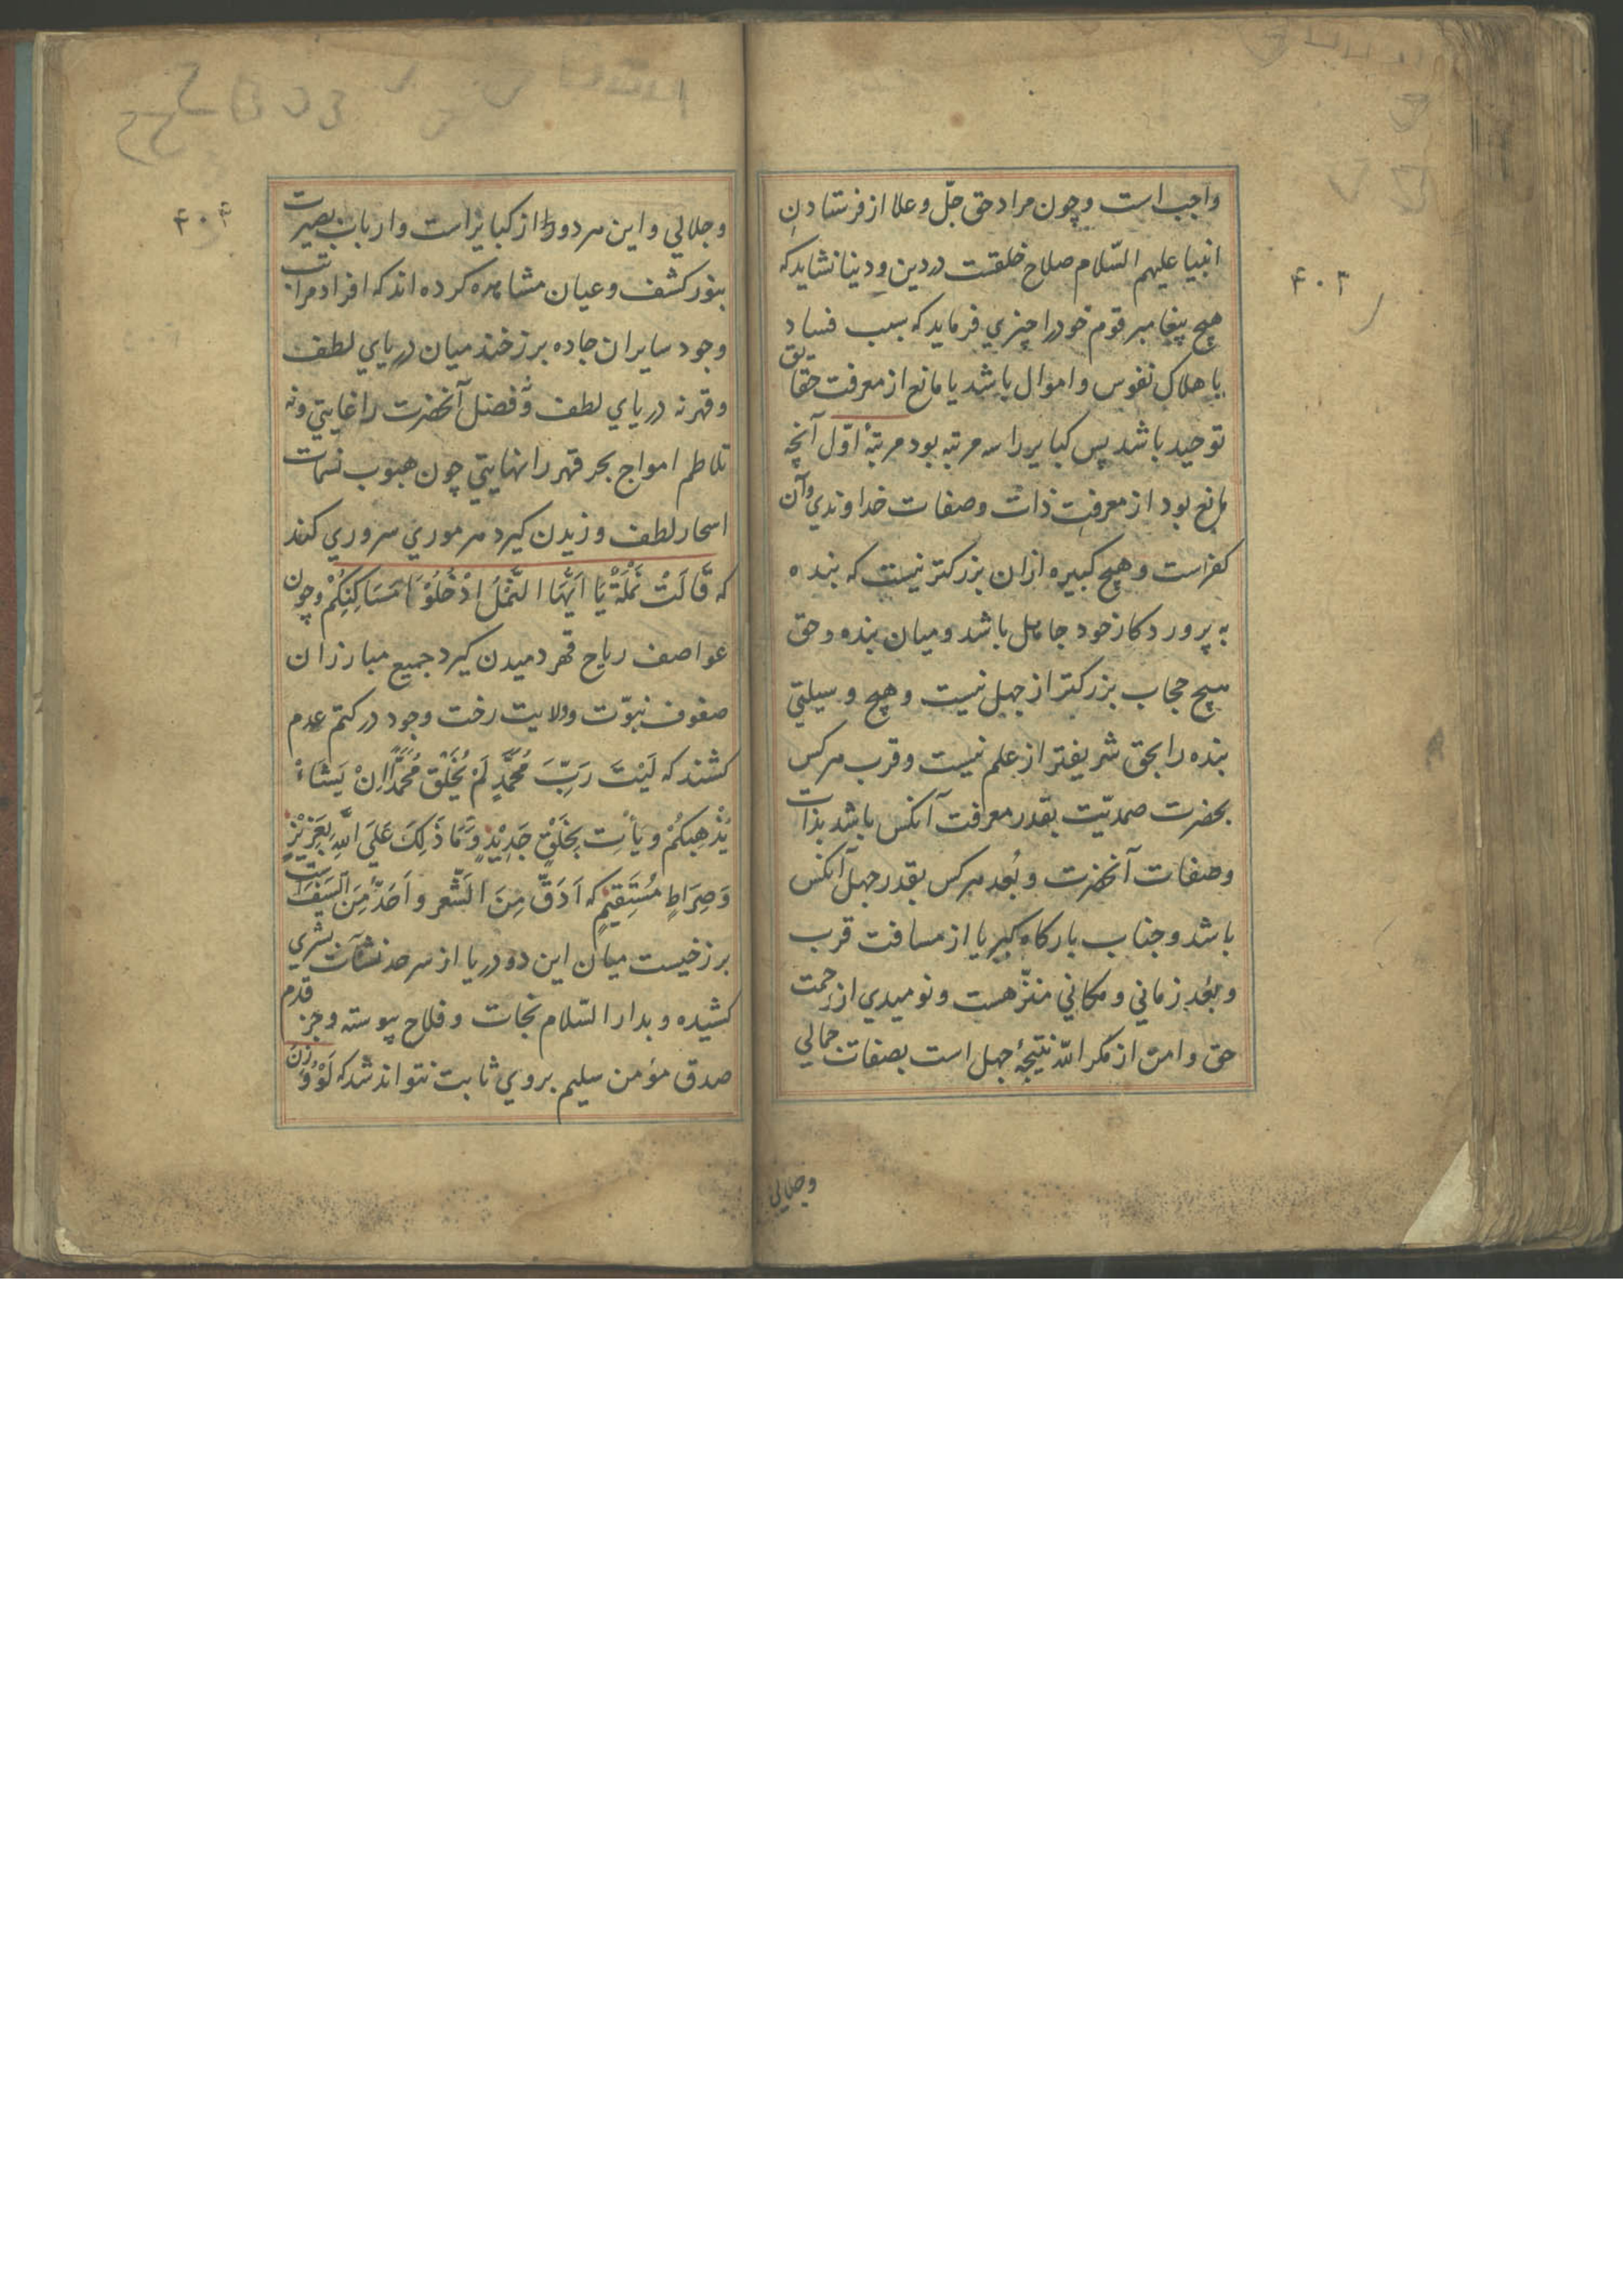 ۴۰۳
واجب است و چون مراد حق جلّ و علا از فرستادن
انبیا علیهم السّلام صلاح خلقست در دین و دنیا نشاید که
هیچ پیغامبر قوم خود را چیزي فرماید که سبب فساد
یا هلاک نفوس و اموال باشد یا مانع از معرفت حقایق
توحید باشد پس کبایر را سه مرتبه بود مرتبهٔ اوّل آنچه
مانع بود از معرفت ذات و صفات خداوندي و آن
کفراست و هیچ کبیره ازان بزرکتر نیست که بنده
به پروردکار خود جاهل باشد و میان بنده و حق
هیچ حجاب بزرکتر از جهل نیست و هیچ وسیلتي
بنده را بحق شریفتر از علم نیست و قرب هرکس
بحضرت صمدیّت بقدر معرفت آنکس باشد بذات
و صفات آنحضرت و بُعد هرکس بقدر جهل آنکس
باشد و جناب بارکاه کبریا از مسافت قرب
و بُعد زماني و مکاني منزّهست و نومیدي از رحمت
حق و امن از مکر اللّه نتیجهٔ جهل است بصفات جمالي
وجلالي
۴۰۴
و جلالي و این هر دو را از کبایر است و ارباب بصیرت
بنور کشف و عیان مشاهده کرده اند که افراد مراتب
وجود سایران جاده برزخند میان دریاي لطف
و قهر نه دریاي لطف و فضل آنحضرت را غایتي و نه
تلاطم امواج بحر قهر را نهایتي چون هبوب نسمات
اسحار لطف وزیدن کیرد هر موري سروري کند
که قَالَتْ نَمْلَةٌ يَا اَيُّهَا النَّمْلُ ادْخُلُوْا مَسَاكِنَكُمْ و چون
عواصف ریاح قهر دمیدن کیرد جمیع مبارزان
صفوف نبوّت و ولایت رخت وجود در کتم عدم
کشند که لَيْتَ رَبِّ مُحَمَّدٍ لَمْ يُخْلَقْ مُحَمَّدًا اِنْ يَشَاءْ
يُذْهِبْكُمْ وَيَأْتِ بِخَلْقٍ جَدِيْدٍ وَمَا ذَلِكَ عَلَي اللّهِ بِعَزِيْزٍ
وَصِرَاطٍ مُسْتَقِيْمٍ که اَدَقُّ مِنَ الشَّعْرِ وَاَحَدُّ مِنَ السَّيْفَ است
برزخیست میان این دو دریا از سرحد نشآت بشري
کشیده و بدار السّلام نجات و فلاح پیوسته و جز قدم
صدق مؤمن سلیم بروي ثابت نتواند شد که لَوْ وُزِنَ